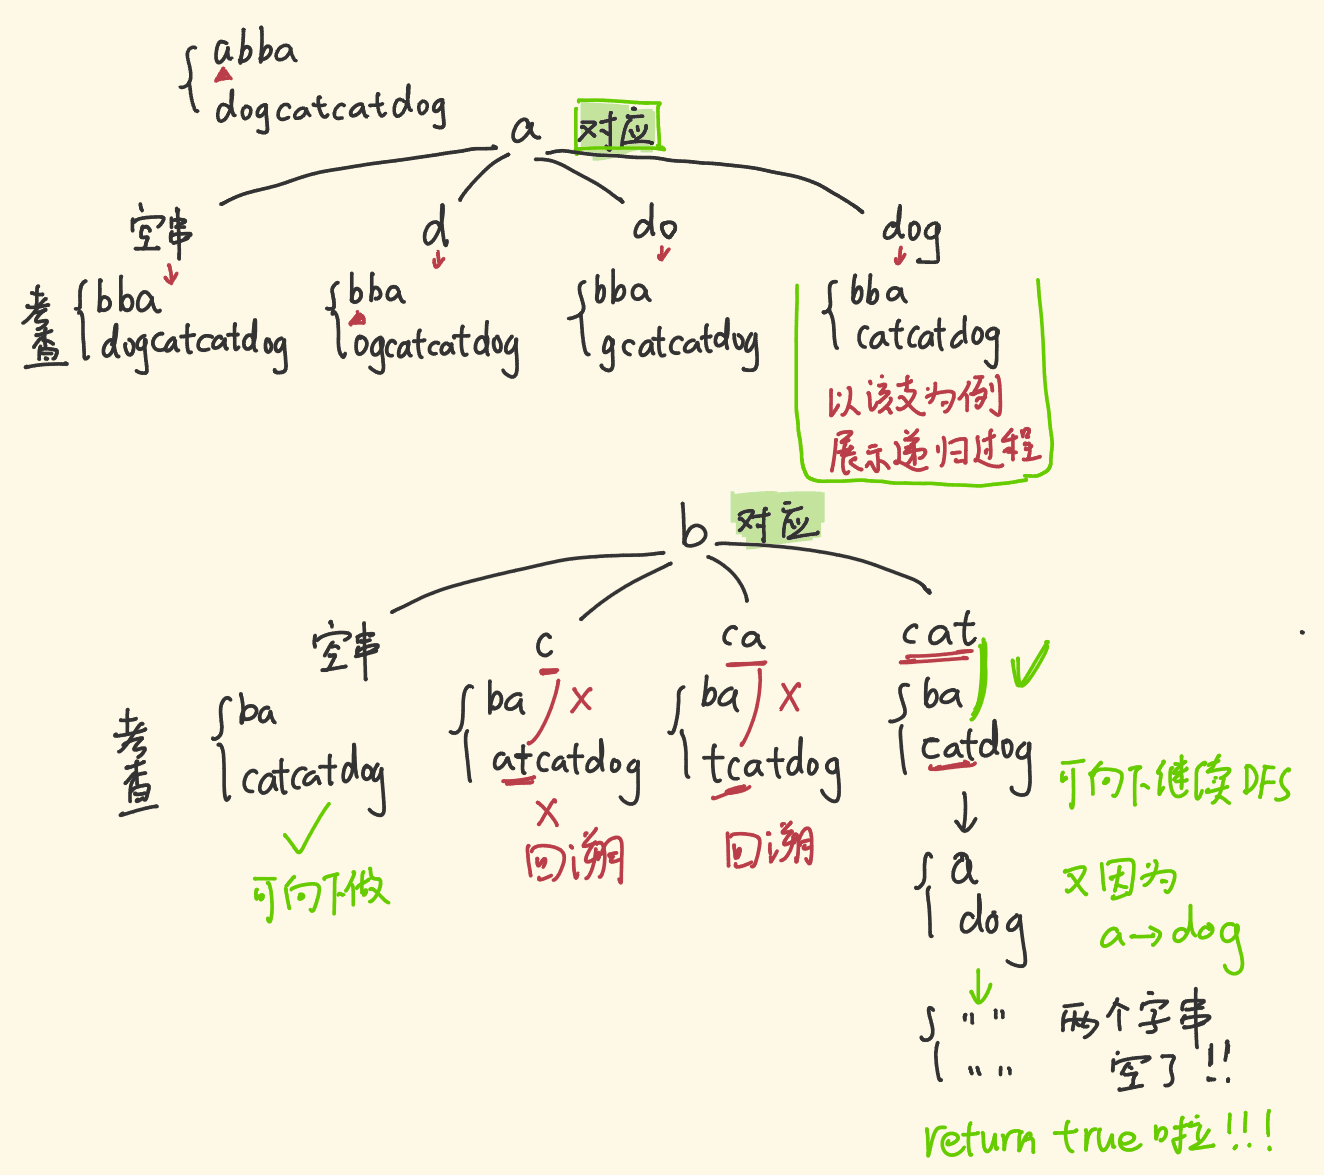 abba
dogcatcatdog
a 对应
空串 d do dog
考查 bba bba bba bba
dogcatcatdog ogcatcatdog gcatcatdog catcatdog
以该支为例
展示递归过程
b 对应
空串 c ca cat
考查 ba ba x ba x ba
catcatdog atcatdog tcatdog catdog
可向下继续DFS
x
可向下做 回溯 回溯
a
dog
又因为
a→dog
" "
" "
两个字串
空了!!
return true 啦!!!